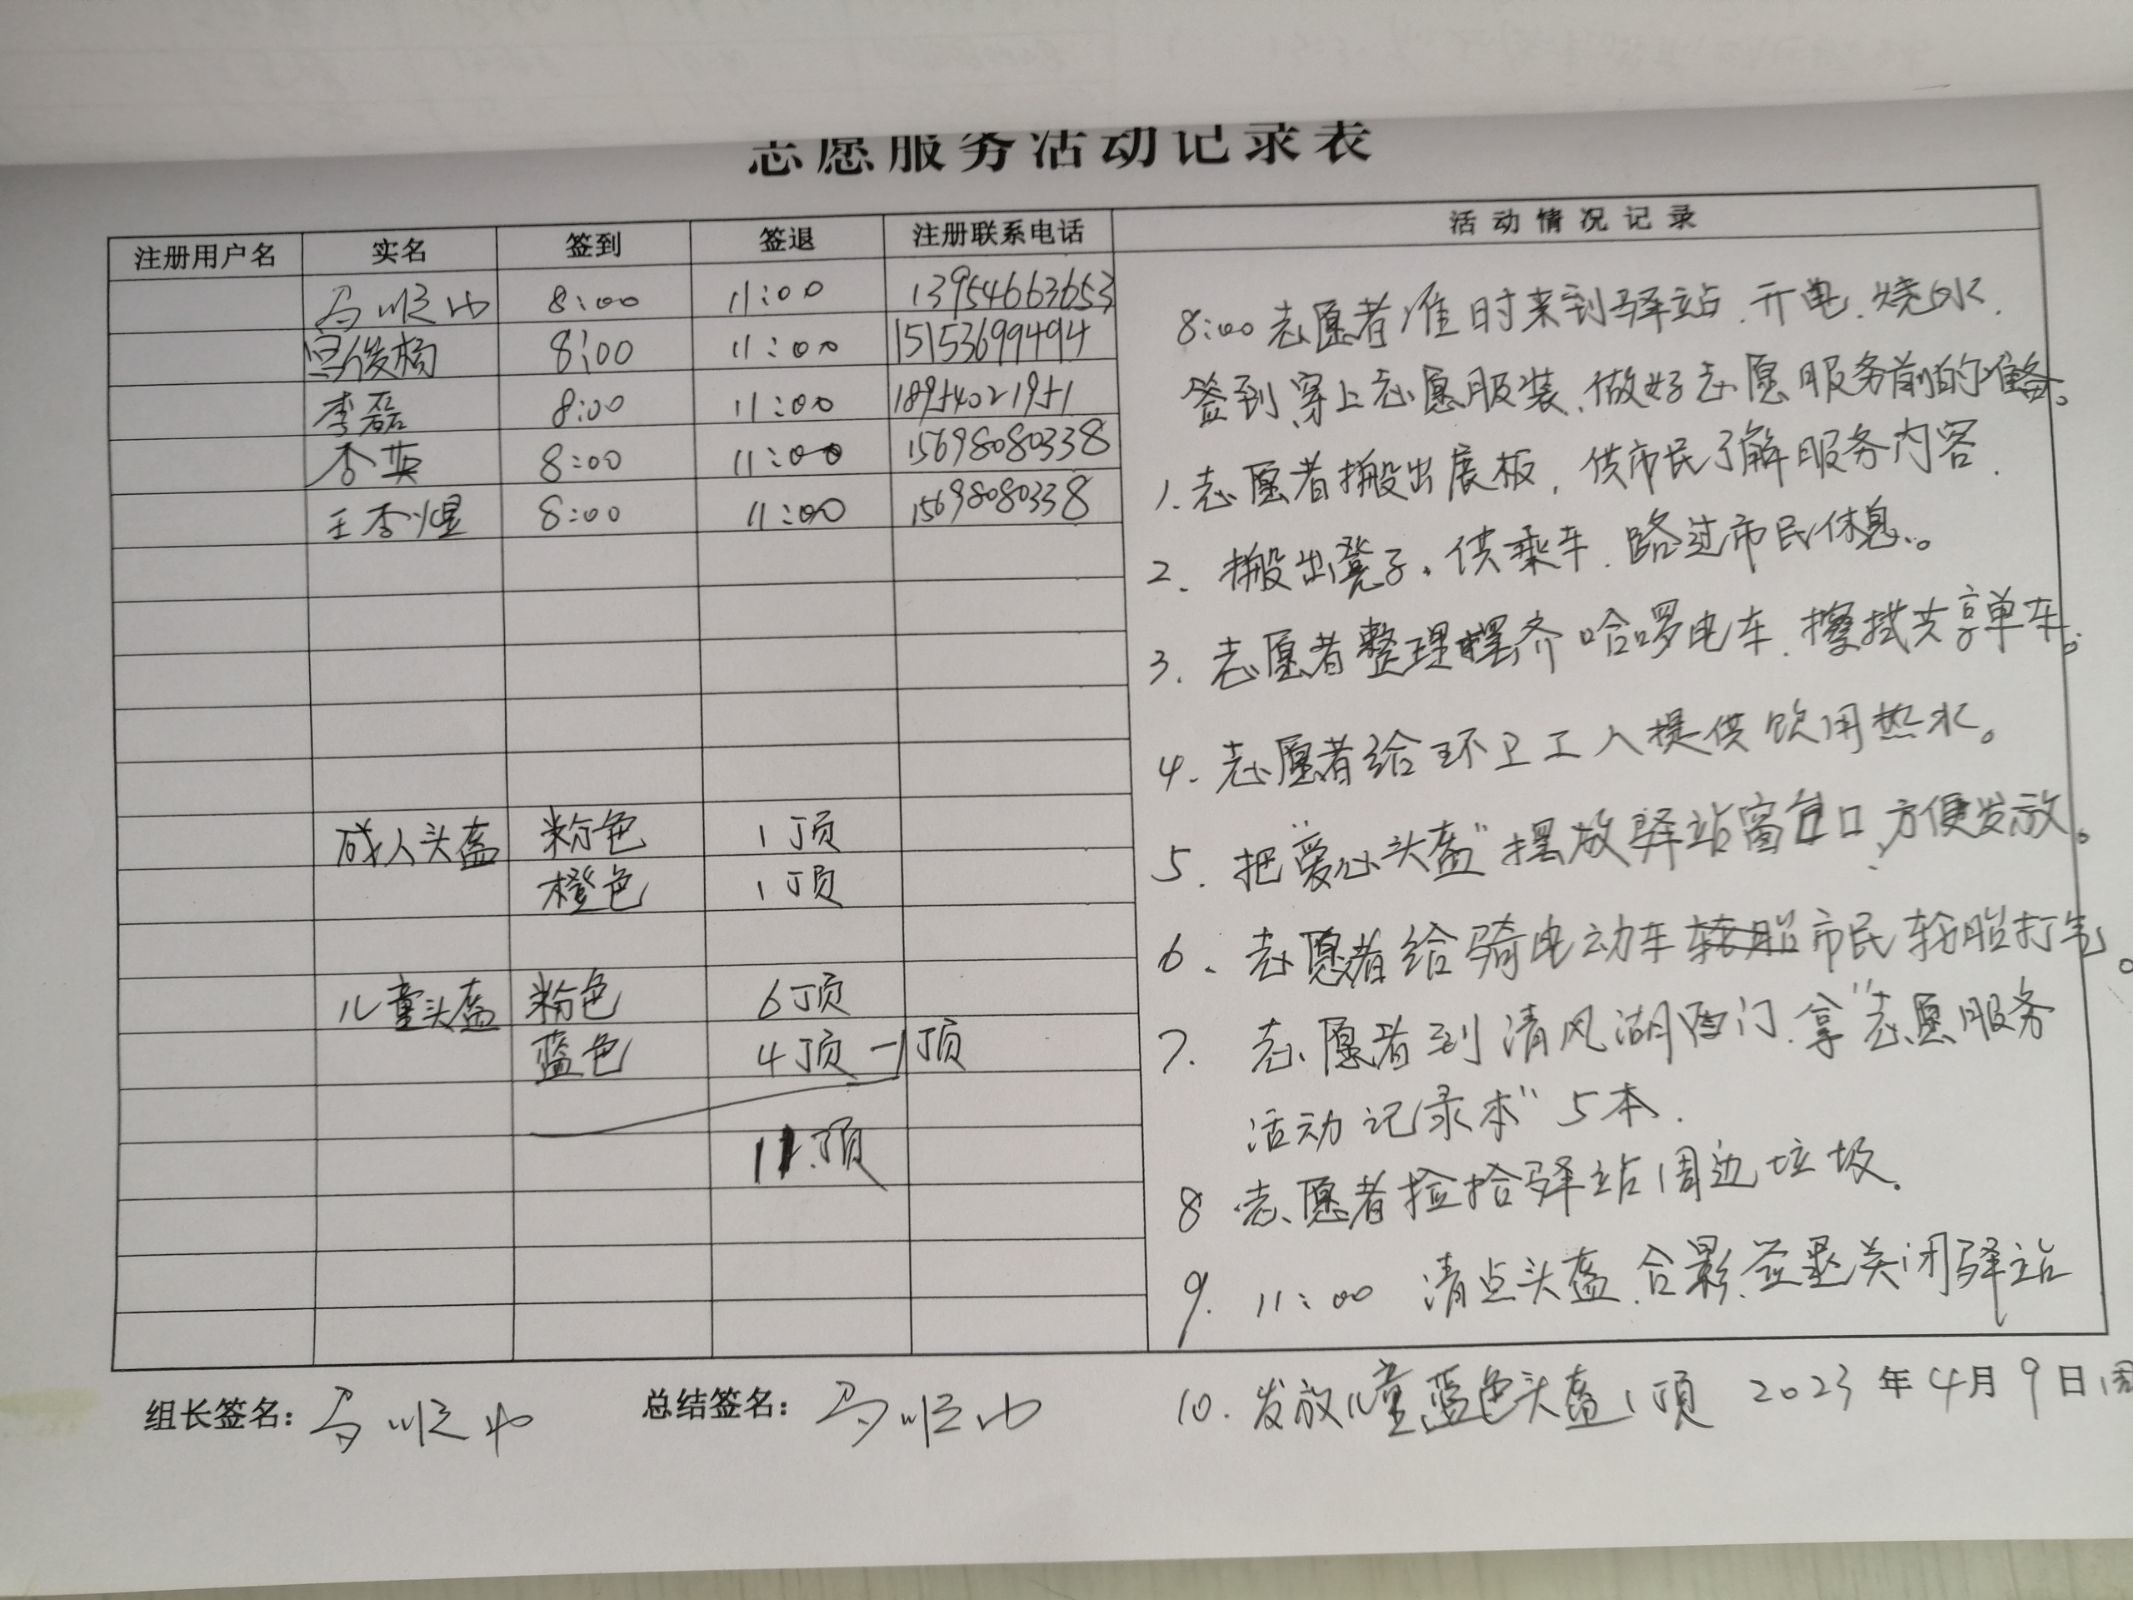 志愿服务活动记录表
注册用户名 实名 签到 签退 注册联系电话 活动情况记录
马顺 8:00 11:00 13954663653
俊杨 8:00 11:00 15153699494
李磊 8:00 11:00 18954021951
李英 8:00 11:00 15698080338
王李煜 8:00 11:00 15698080338
成人头盔 粉色 1顶
橙色 1顶
儿童头盔 粉色 6顶
蓝色 4顶-1顶
11顶
8:00志愿者准时来到驿站.开电.烧水.
签到穿上志愿服装、做好志愿服务前的准备。
1.志愿者搬出展板,供市民了解服务内容.
2.搬出凳子。供乘车.路过市民休息。
3.志愿者整理摆齐哈啰电车.擦拭共享单车。
4.志愿者给环卫工人提供饮用热水。
5.把"爱心头盔"摆放驿站窗口,方便发放。
6.志愿者给骑电动车市民轮胎打气。
7.志愿者到清风湖西门.拿"志愿服务
活动记录本"5本.
8.志愿者捡拾驿站周边垃圾.
9.11:00 清点头盔、合影、签退关闭驿站
组长签名:马顺 总结签名:马顺
10.发放儿童蓝色头盔1顶 2023年4月9日